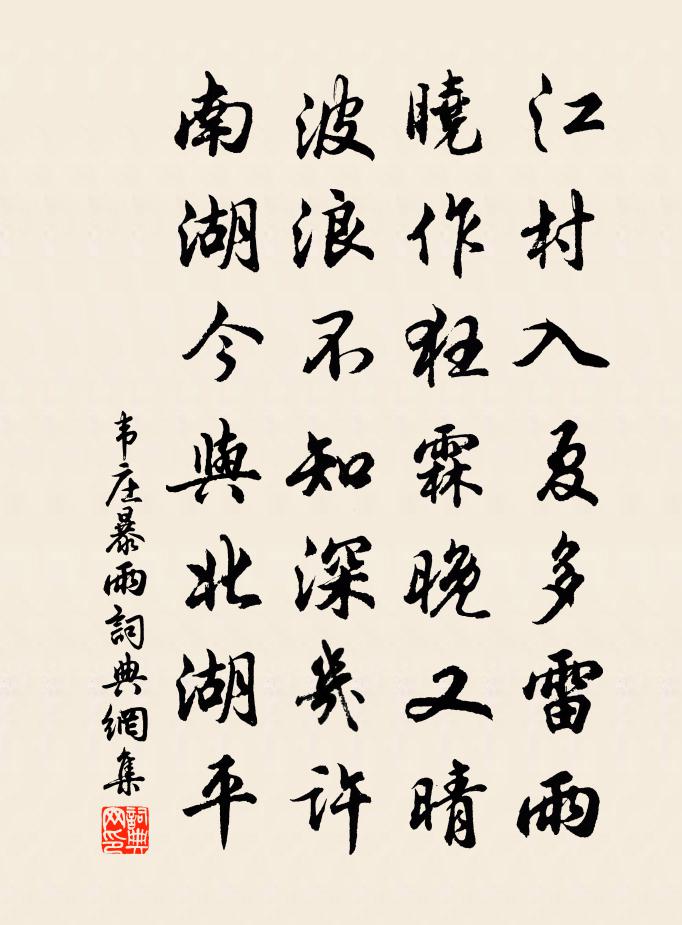 江村入夏多雷雨
曉作狂霖晚又晴
波浪不知深幾許
南湖今與北湖平
韦庄暴雨詞典網集
詞典網印